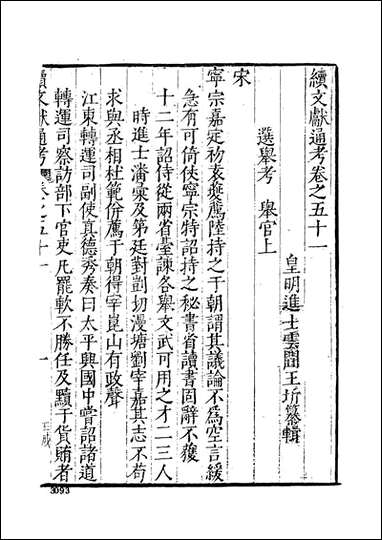 續文獻通考卷之五十一
皇明進士雲間王圻纂輯
選舉考　舉官上
宋
寧宗嘉定初袁燮薦陸持之于朝謂其議論不為空言緩
急有可倚仗寧宗特詔持之秘書省讀書固辭不獲
十二年詔侍從兩省臺諫各舉文武可用之才二三人
時進士潘彙及第廷對剴切漫塘劉宰嘉其志不苟
求與丞相杜範併薦于朝得宰崑山有政聲
江東轉運司副使真德秀奏曰太平興國中嘗詔諸道
轉運司察訪部下官吏凡罷軟不勝任及黷于貨賄者
續文獻通考
卷之五十一
一
3093